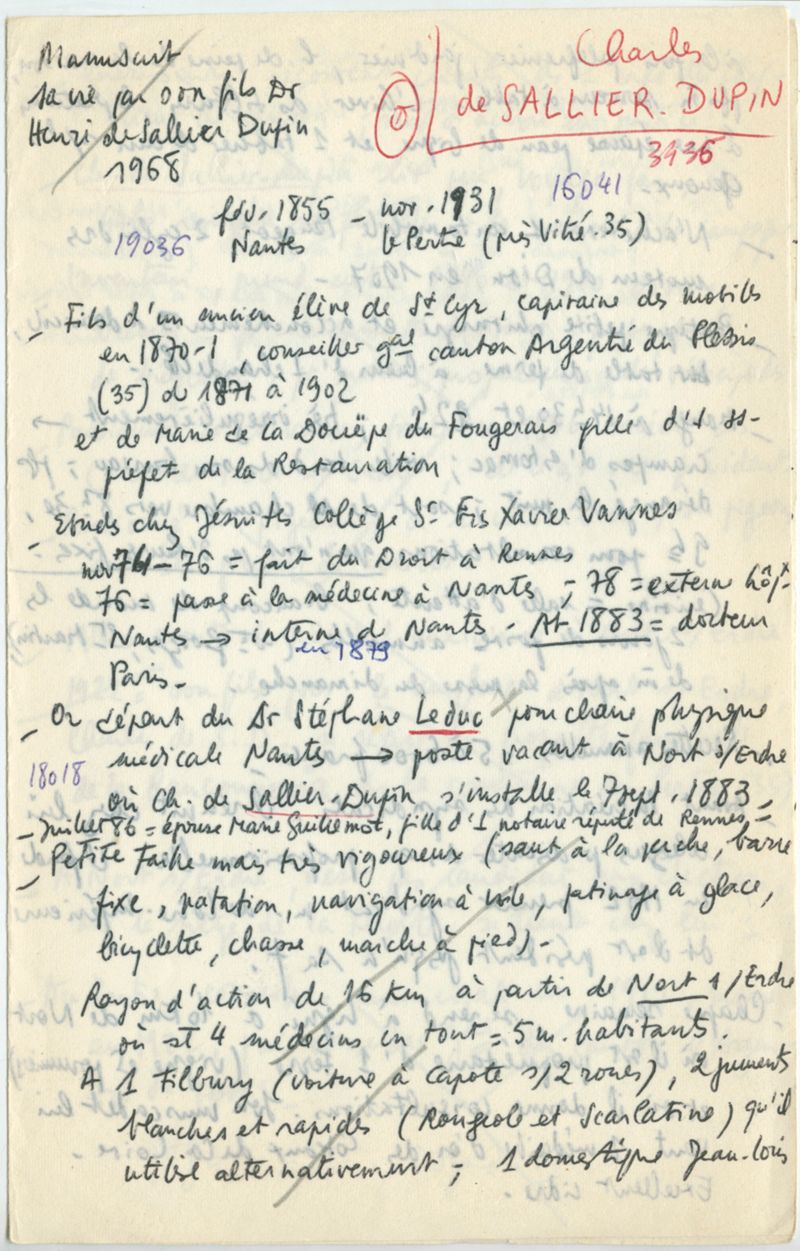 Manuscrit
sa vie par son fils Dr
Henri de Sallier Dupin
1968
Charles
de SALLIER. DUPIN
3936
16041
fév. 1855 – nov. 1931
19036 Nantes le Pertre (près Vitré. 35)
– Fils d'un ancien élève de St Cyr, capitaine des mobiles
en 1870-1, conseiller gal canton Argentré du Plessis
(35) de 1871 à 1902
et de Marie de la Douëpe du Fougerais fille d'1 ss-
préfet de la Restauration
– Etudes chez Jésuites Collège St Frs Xavier Vannes
nov 74 – 76 = fait du Droit à Rennes
76 = passe à la médecine à Nantes ; 78 = externe hôpx
Nantes → interne de Nantes - At 1883 = docteur
en 1879
Paris -
– Or départ du Dr Stéphane Leduc pour chaire physique
médicale Nantes → poste vacant à Nort s/Erdre
18018
où Ch. de Sallier-Dupin s'installe le 7 sept. 1883 -
– Juillet 86 = épouse Marie Guihemot, fille d'1 notaire réputé de Rennes -
– Petite taille mais très vigoureux (saut à la perche, barre
fixe, natation, navigation à voile, patinage à glace,
bicyclette, chasse, marche à pied) -
Rayon d'action de 16 km à partir de Nort s/Erdre
où st 4 médecins en tout = 5 m. habitants.
A 1 Tilbury (voiture à capote s/2 roues), 2 juments
blanches et rapides (Rougeole et Scarlatine) qu'il
utilise alternativement ; 1 domestique Jean-Louis